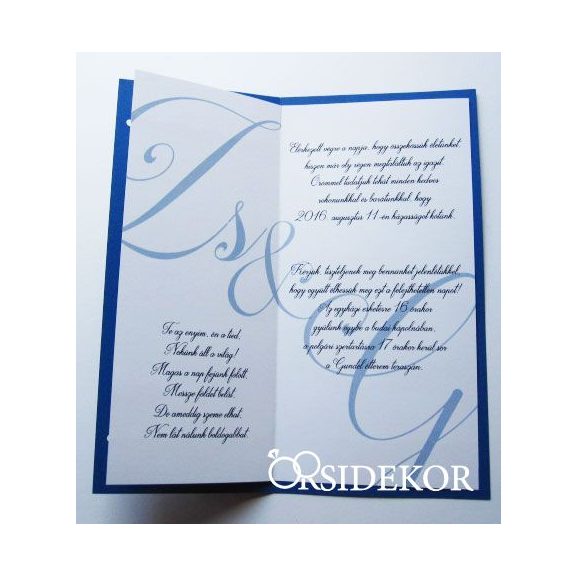 Zs & G
Te az enyém, én a tied,
Nekünk áll a világ!
Magas a nap fejünk fölött,
Messze földet belát,
De ameddig szeme elhat,
Nem lát nálunk boldogabbat.
Elérkezett végre a napja, hogy összekössük életünket,
hiszen már oly régen megtaláltuk az igazit.
Örömmel tudatjuk tehát minden kedves
rokonunkkal és barátunkkal, hogy
2016. augusztus 11-én házasságot kötünk.
Kérjük, tiszteljenek meg bennünket jelenlétükkel,
hogy együtt élhessük meg ezt a felejthetetlen napot!
Az egyházi esketésre 16 órakor
gyűlünk egybe a budai kápolnában,
a polgári szertartásra 17 órakor kerül sor
a Gundel étterem teraszán.
ORSIDEKOR